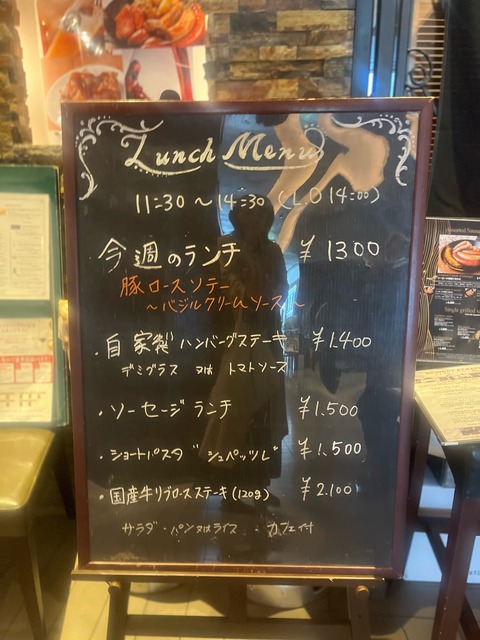 Lunch Menu
11:30 ～ 14:30 (L.O 14:00)
今週のランチ ¥1300
豚ロースソテー
～バジルクリームソース～
・自家製ハンバーグステーキ ¥1.400
デミグラス 又は トマトソース
・ソーセージランチ ¥1.500
・ショートパスタ "シュペッツレ" ¥1.500
・国産牛リブロースステーキ(120g) ¥2.100
サラダ・パン又はライス・カフェ付
Assorted Sausage
Single grilled